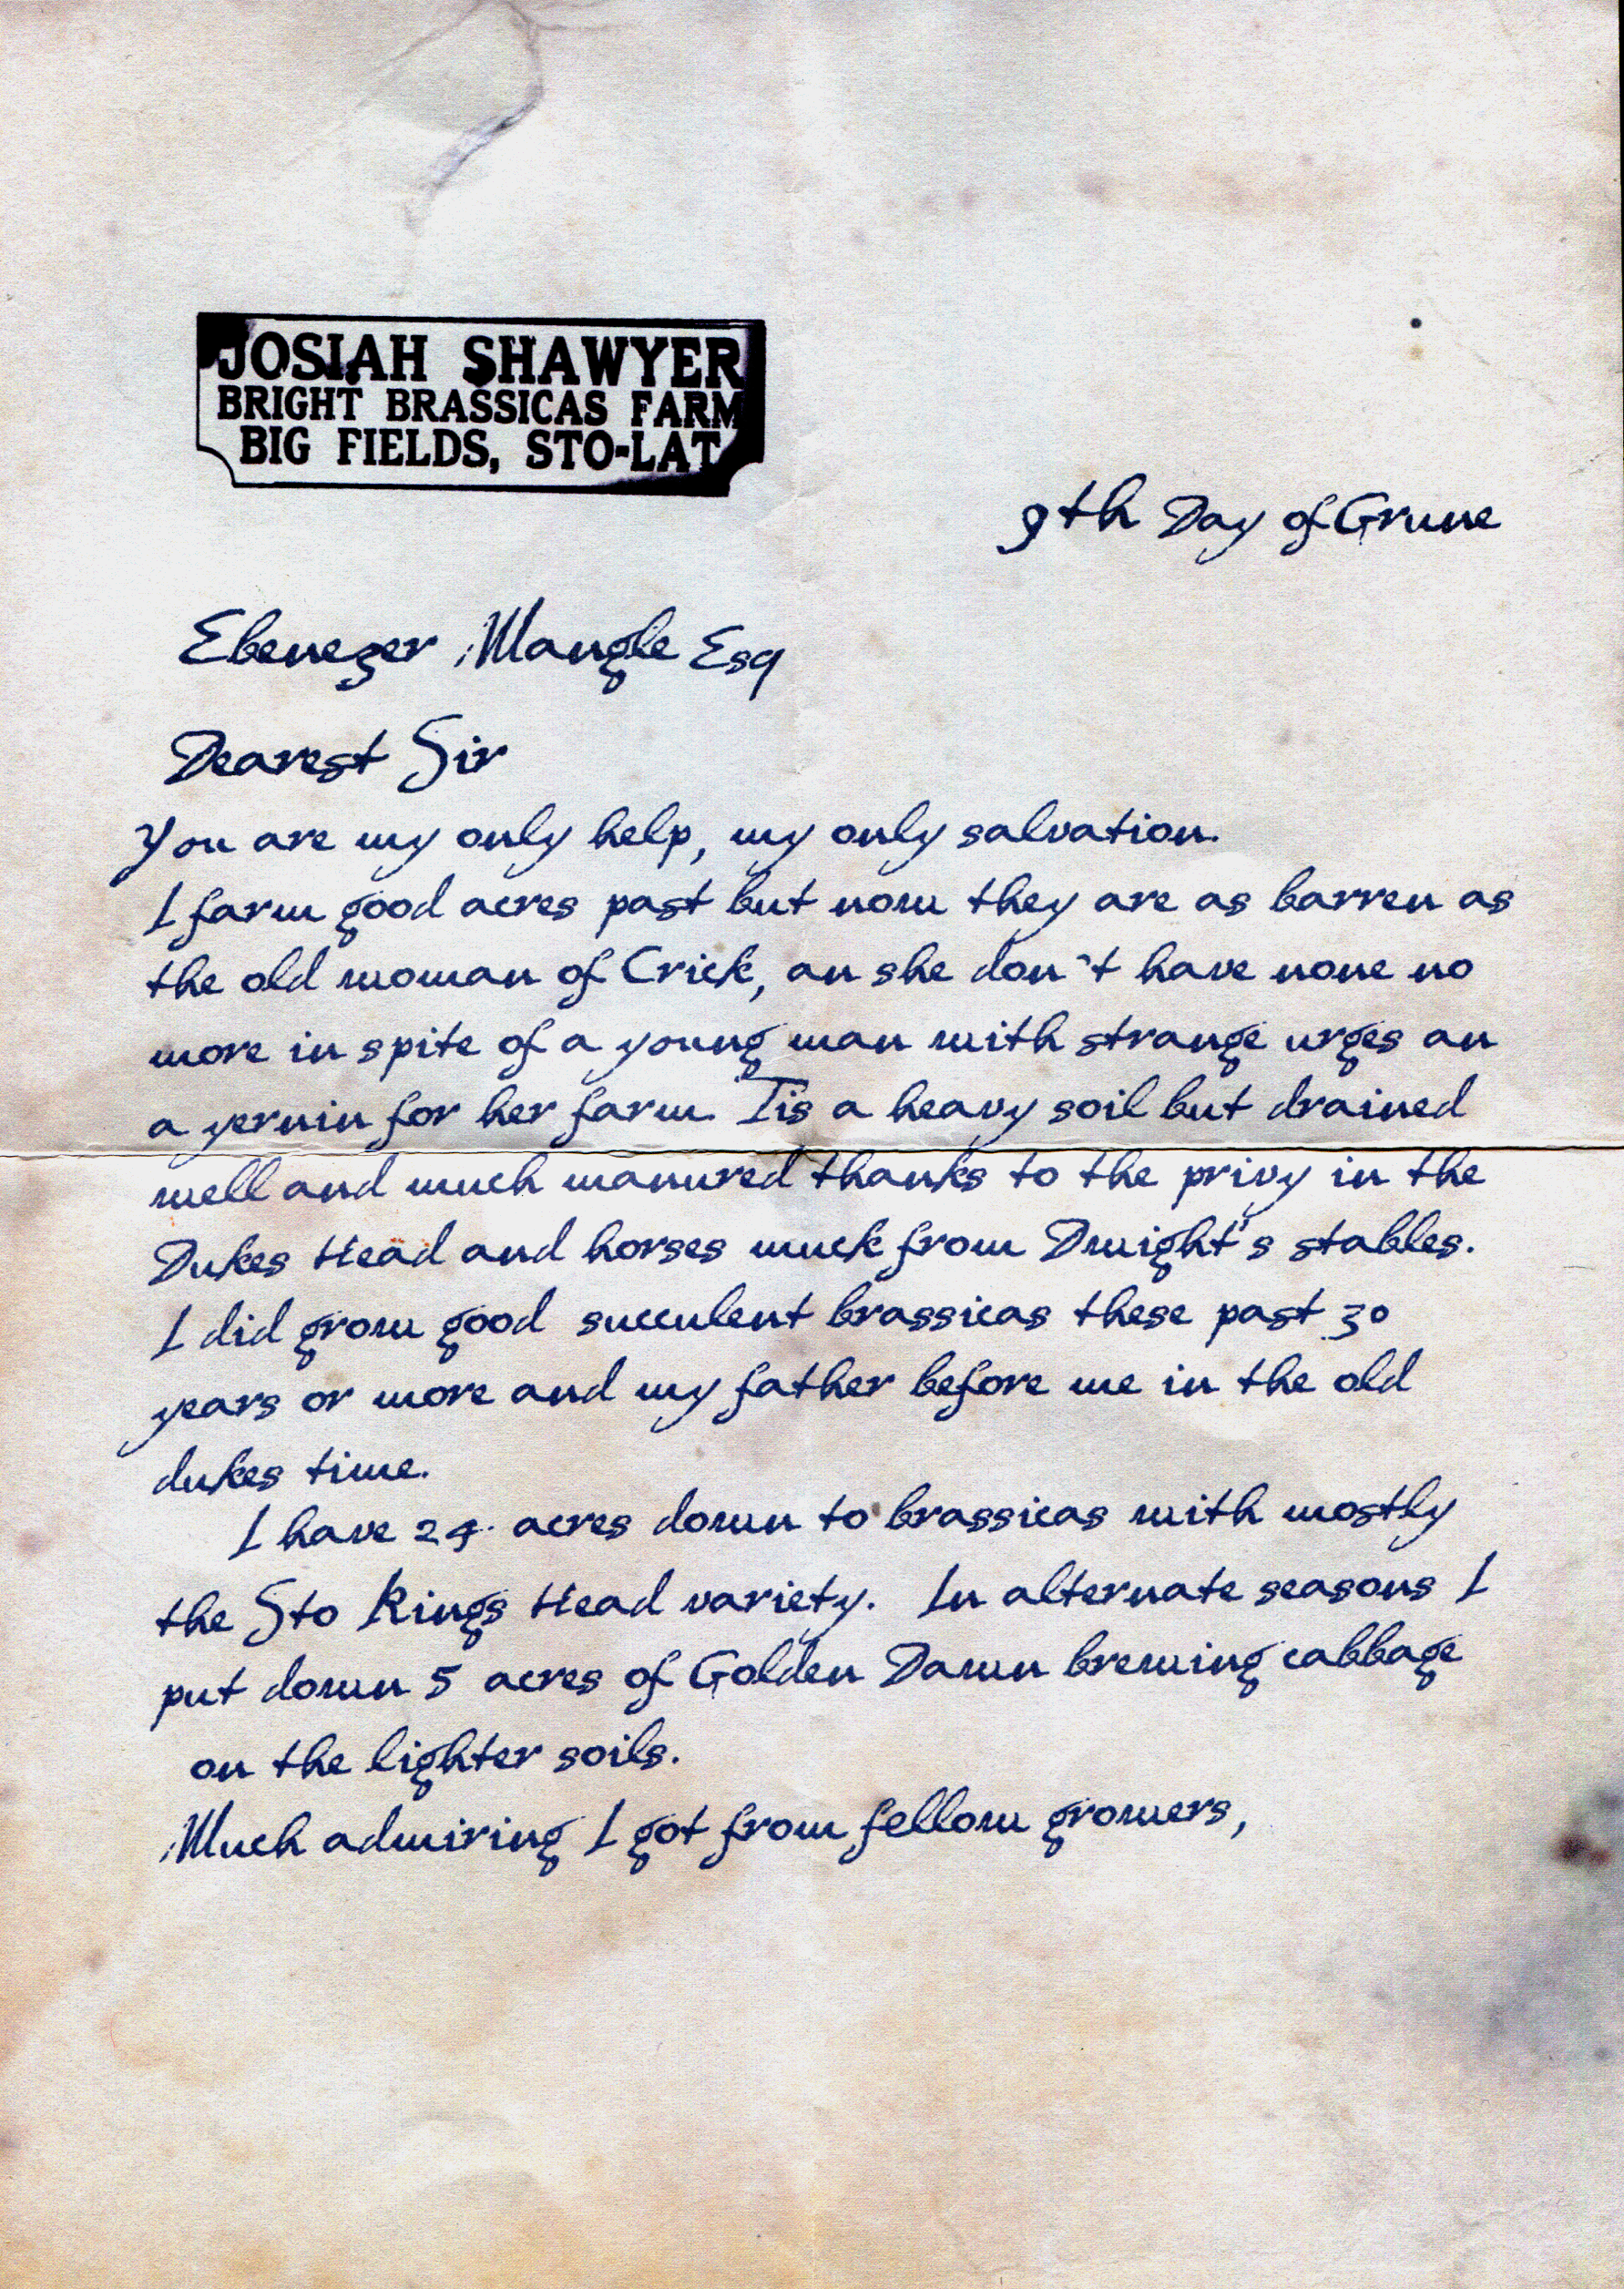 JOSIAH SHAWYER
BRIGHT BRASSICAS FARM
BIG FIELDS, STO-LAT
9th Day of Grune
Ebenezer Mangle Esq
Dearest Sir
You are my only help, my only salvation.
I farm good acres past but now they are as barren as
the old woman of Crick, an she don't have none no
more in spite of a young man with strange urges an
a yernin for her farm. Tis a heavy soil but drained
well and much manured thanks to the privy in the
Dukes Head and horses muck from Dwight's stables.
I did grow good succulent brassicas these past 30
years or more and my father before me in the old
dukes time.
I have 24 acres down to brassicas with mostly
the Sto Kings Head variety. In alternate seasons I
put down 5 acres of Golden Dawn brewing cabbage
on the lighter soils.
Much admiring I got from fellow growers,